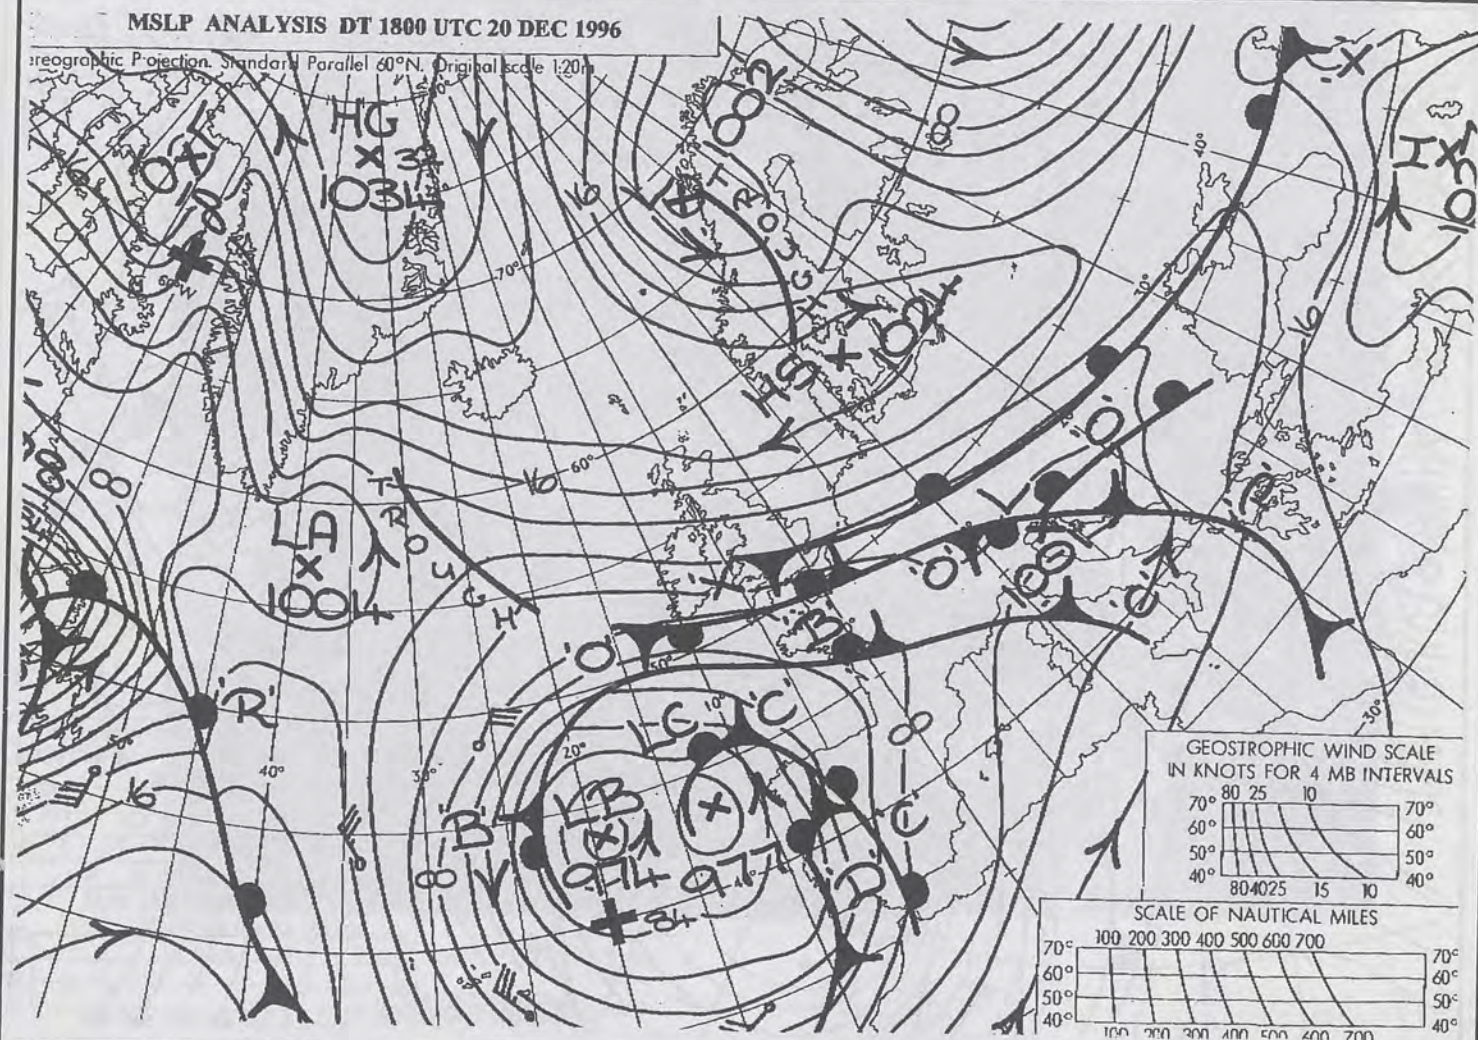 MSLP ANALYSIS DT 1800 UTC 20 DEC 1996
Stereographic Projection. Standard Parallel 60°N. Original scale 1:20m
HG
1034
882
8
16
TROUGH
HS
1024
16
70°
40°
16
60°
16
8
LA
1004
TROUGH
'O'
'O'
'O'
L
1001
'B'
'C'
'R'
50°
40°
30°
20°
10°
16
8
'B'
LB
974
84
LG
977
'C'
'C'
'D'
8
30°
GEOSTROPHIC WIND SCALE
IN KNOTS FOR 4 MB INTERVALS
80 25 10
70° 70°
60° 60°
50° 50°
40° 40°
80 40 25 15 10
SCALE OF NAUTICAL MILES
100 200 300 400 500 600 700
70° 70°
60° 60°
50° 50°
40° 40°
100 200 300 400 500 600 700